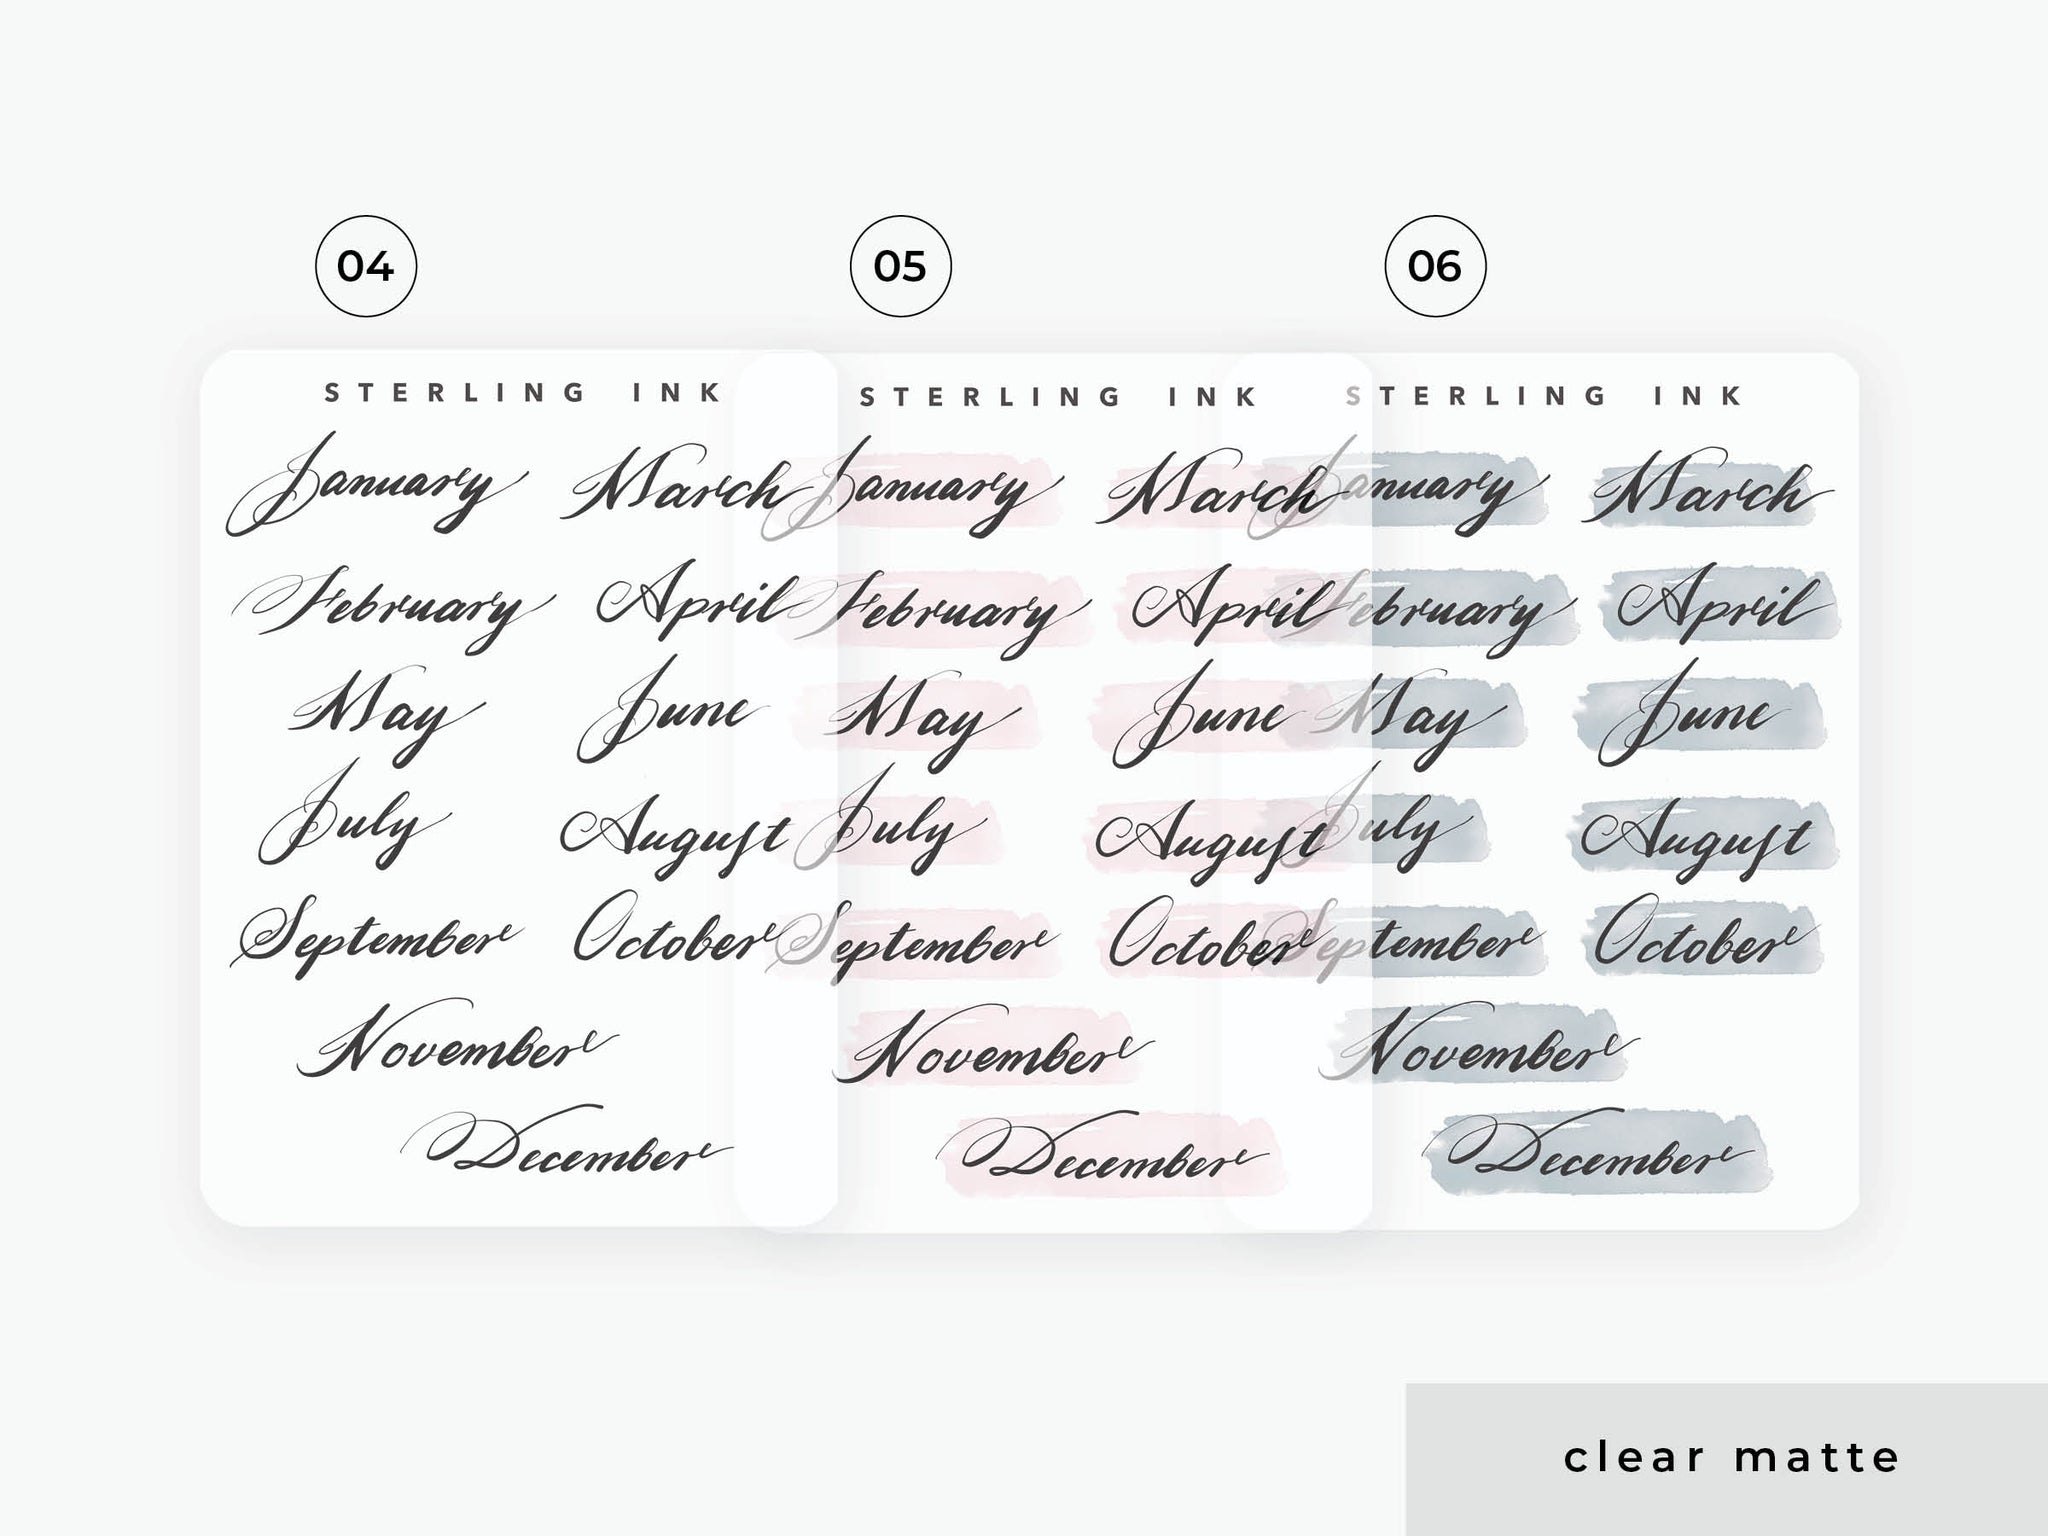 04 05 06
STERLING INK STERLING INK STERLING INK
January March January March January March
February April February April February April
May June May June May June
July August July August July August
September October September October September October
November November November
December December December
clear matte